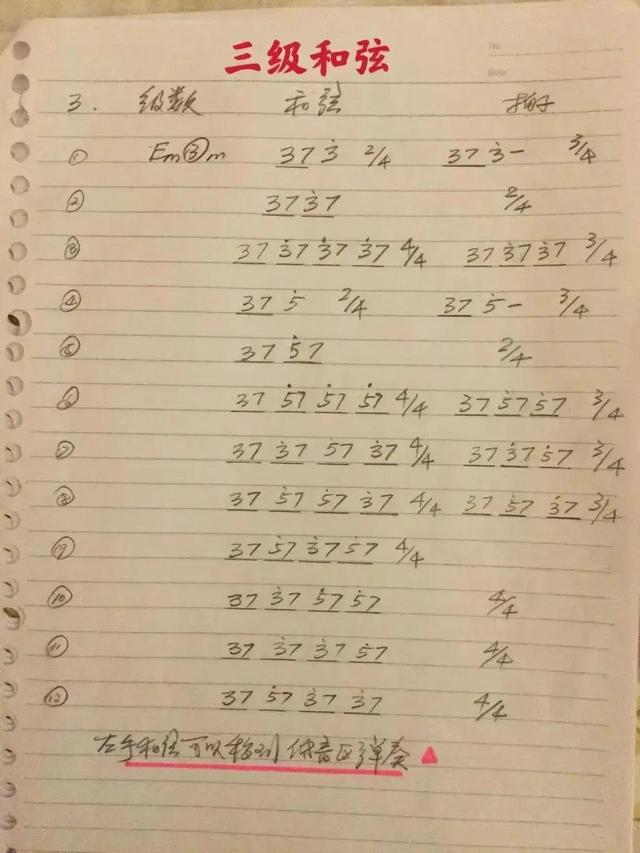 三级和弦
3. 级数 和弦 拍子
① Em③m 37 3̇ 2/4 37 3̇- 3/4
② 37 3̇7 2/4
③ 37 3̇7 3̇7 3̇7 4/4 37 3̇7 3̇7 3/4
④ 37 5̇ 2/4 37 5̇- 3/4
⑤ 37 5̇7 2/4
⑥ 37 5̇7 5̇7 5̇7 4/4 37 5̇7 5̇7 3/4
⑦ 37 3̇7 5̇7 3̇7 4/4 37 3̇7 5̇7 3/4
⑧ 37 5̇7 5̇7 3̇7 4/4 37 5̇7 3̇7 3/4
⑨ 37 5̇7 3̇7 5̇7 4/4
⑩ 37 3̇7 5̇7 5̇7 4/4
⑪ 37 3̇7 3̇7 5̇7 4/4
⑫ 37 5̇7 3̇7 3̇7 4/4
左手和弦可以移到低音区弹奏